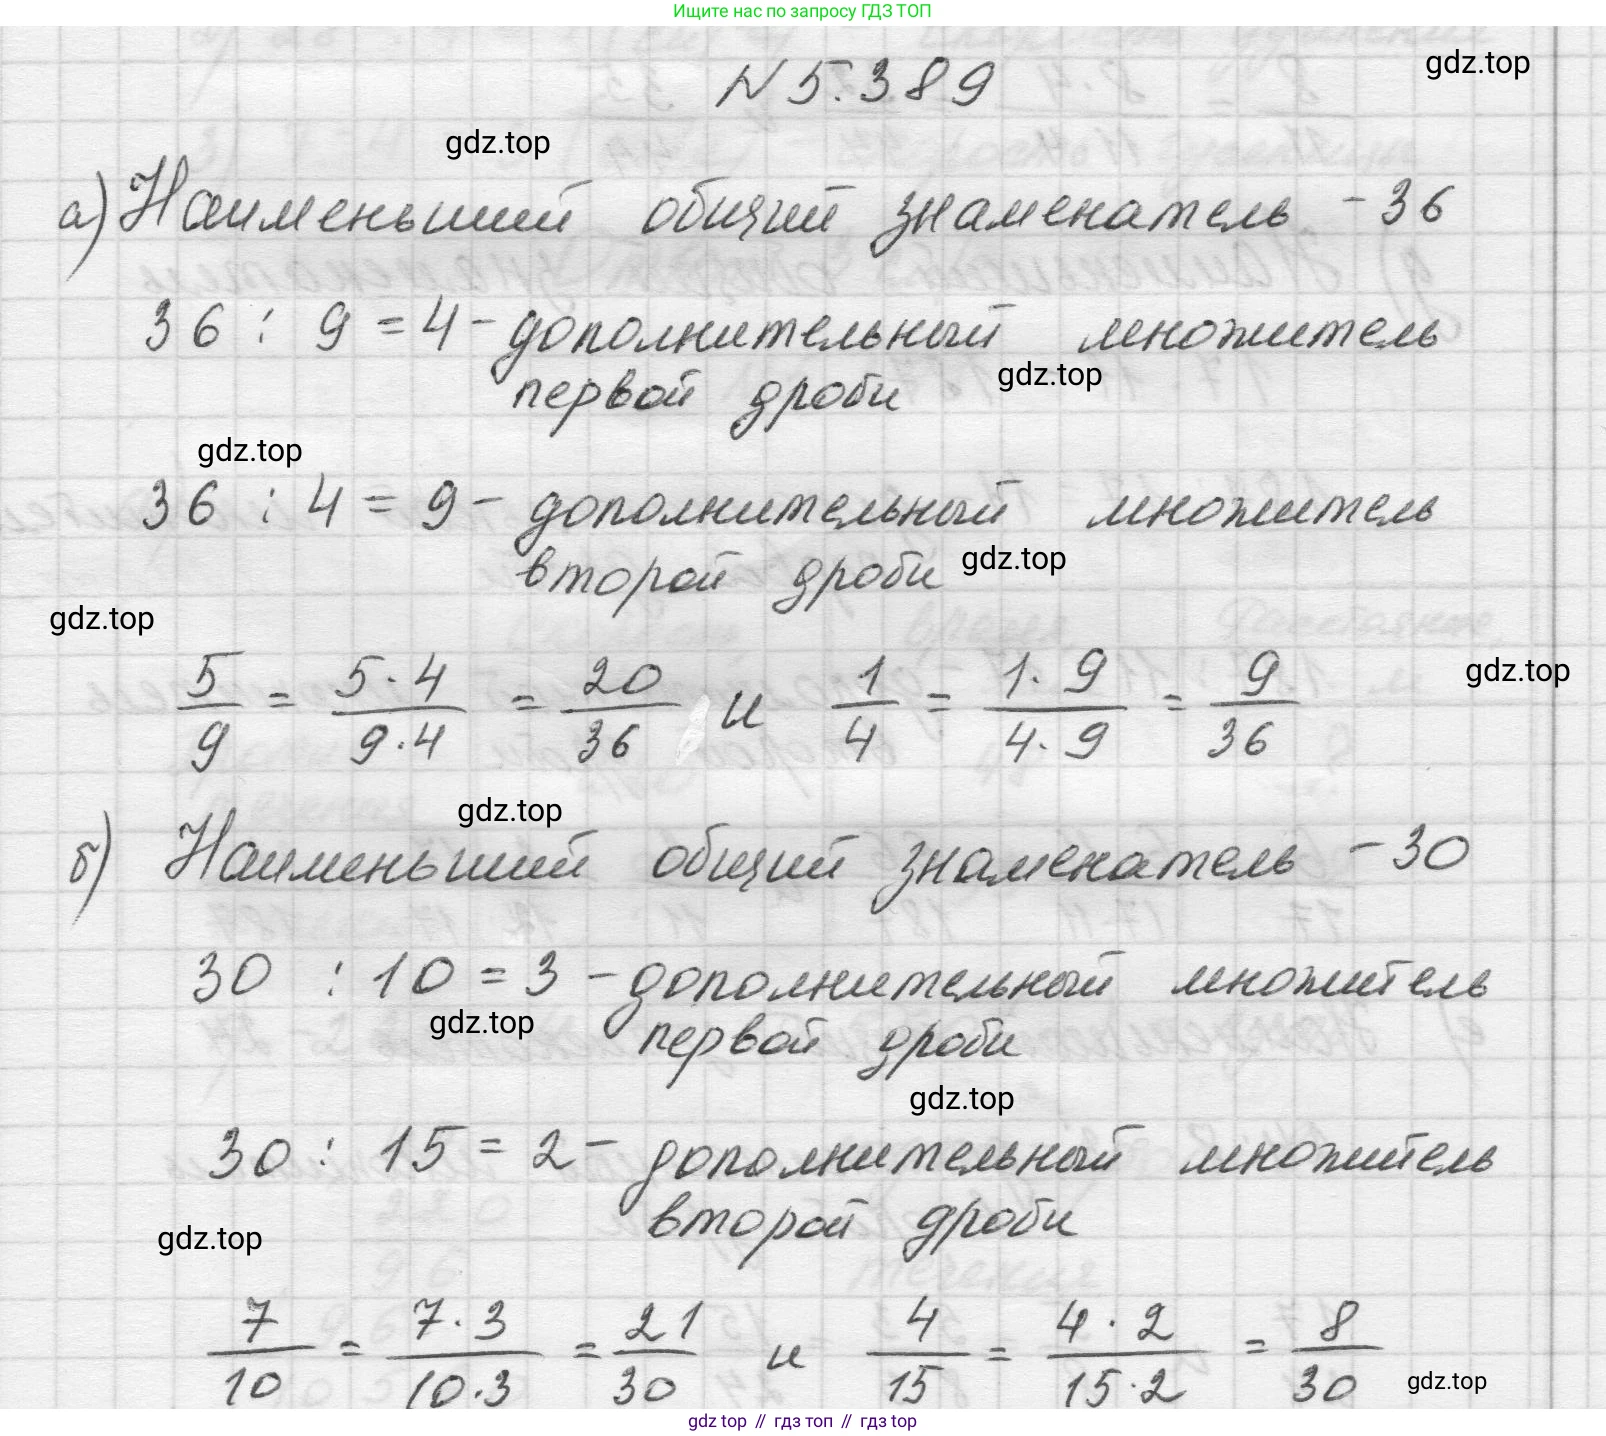 Ищите нас по запросу ГДЗ ТОП
N 5.389
gdz.top
gdz.top
а) Наименьший общий знаменатель - 36
36 : 9 = 4 - дополнительный множитель
первой дроби
gdz.top
gdz.top
36 : 4 = 9 - дополнительный множитель
второй дроби
gdz.top
gdz.top
5/9 = 5·4/9·4 = 20/36 и 1/4 = 1·9/4·9 = 9/36
gdz.top
gdz.top
б) Наименьший общий знаменатель - 30
30 : 10 = 3 - дополнительный множитель
первой дроби
gdz.top
gdz.top
30 : 15 = 2 - дополнительный множитель
второй дроби
gdz.top
7/10 = 7·3/10·3 = 21/30 и 4/15 = 4·2/15·2 = 8/30
gdz.top
gdz top // гдз топ // gdz top